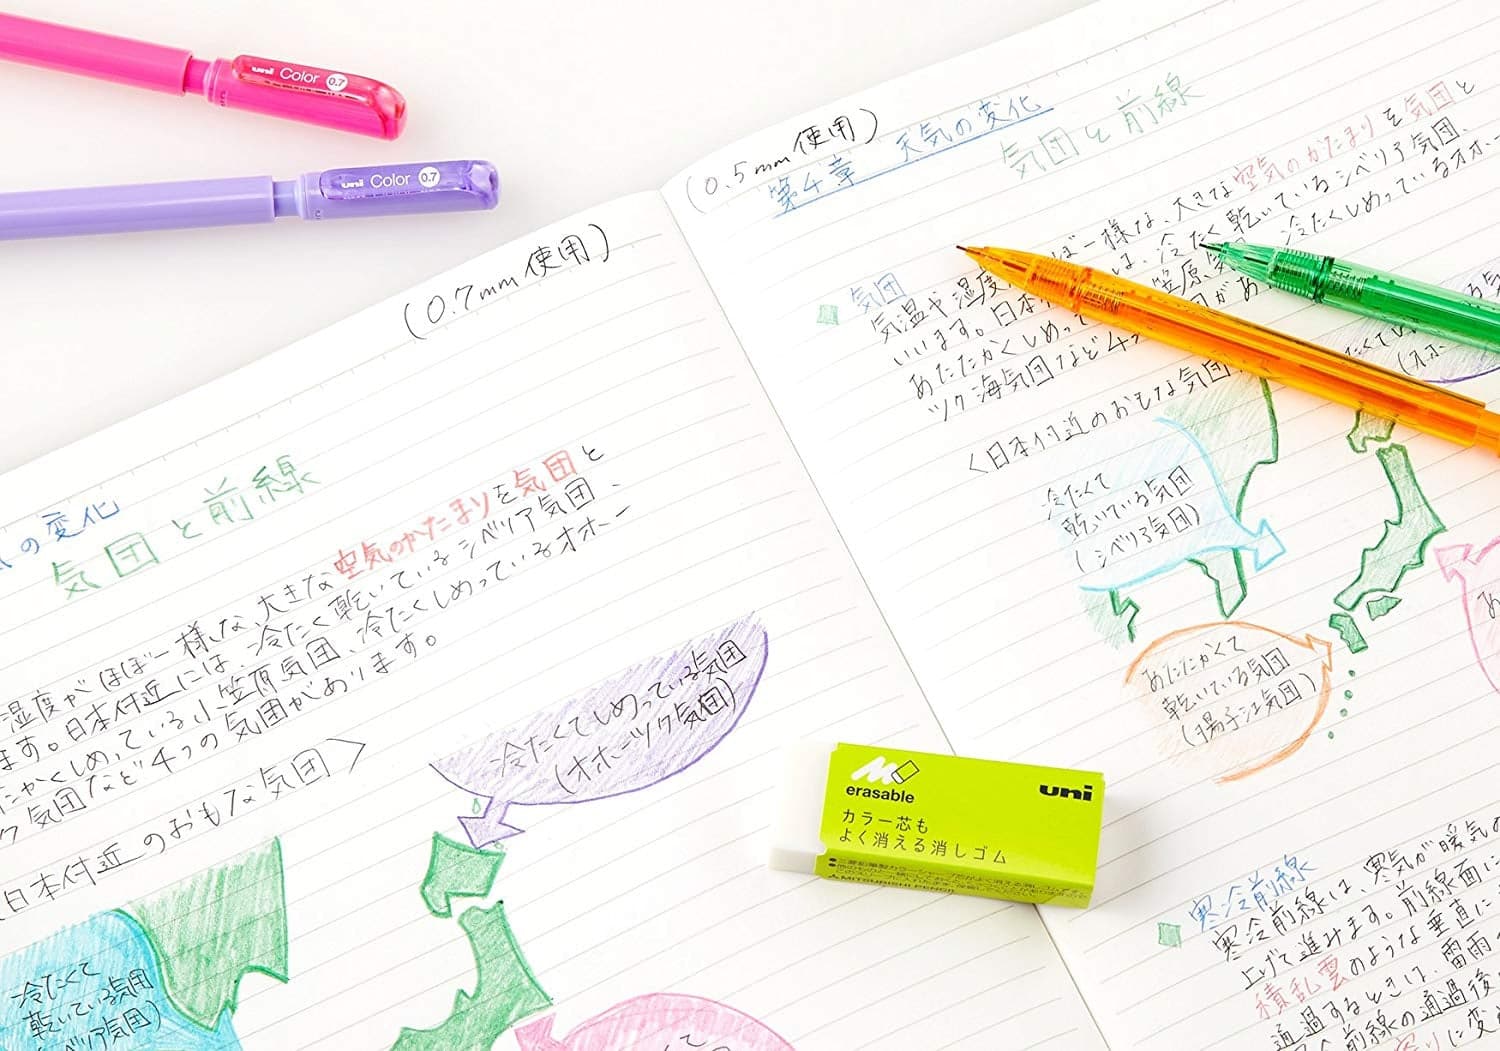 uni Color 0.7
uni Color 0.7
(0.7mm使用)
の変化
気団と前線
湿度がほぼ一様な、大きな空気のかたまりを気団と
ます。日本付近には、冷たく乾いているシベリア気団、
たかくしめっている小笠原気団、冷たくしめっているオホー
ク気団など4つの気団があります。
日本付近のおもな気団〉
冷たくてしめっている気団
(オホーツク気団)
冷たくて
乾いている気団
ベリア気団)
(0.5mm使用)
第4章 天気の変化
気団と前線
気団
気温や湿度 ほぼ一様な、大きな空気のかたまりを気団と
いいます。日本 は、冷たく乾いているシベリア気団、
あたたかくしめって 笠原気 冷たくしめっているオホー
ツク海気団など4つ 団があ
〈日本付近のおもな気団
冷たくて
乾いている気団
(シベリア気団)
あたたかくて
乾いている気団
(揚子江気団)
erasable
uni
カラー芯も
よく消える消しゴム
MITSUBISHI PENCIL
寒冷前線
寒冷前線は、寒気が暖気の
上げて進みます。前線面に
積乱雲のような垂直に
通過するときは、雷雨
前線の通過後
に変